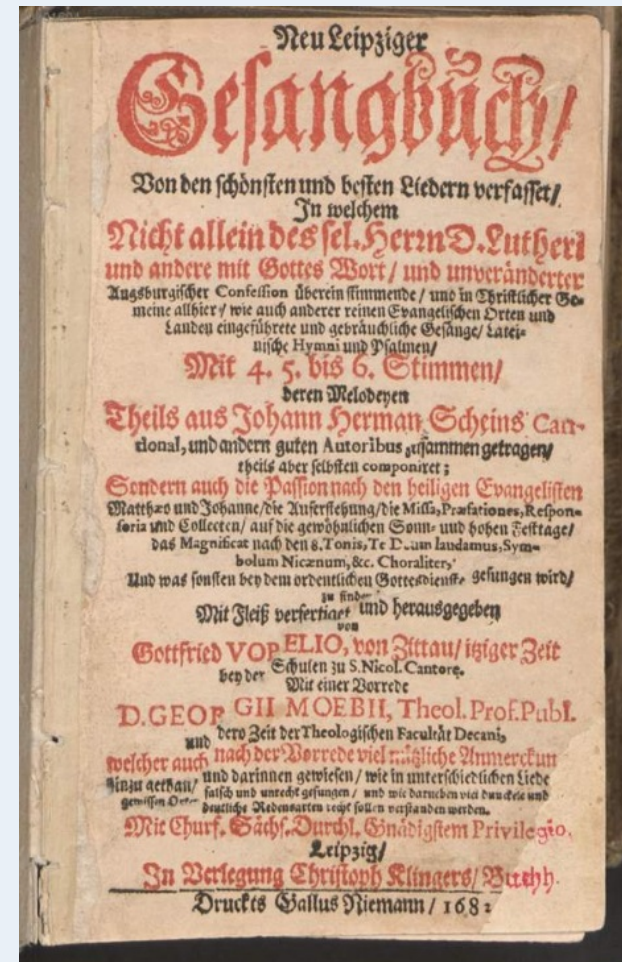 Neu Leipziger
Gesangbuch/
Von den schönsten und besten Liedern verfasset/
In welchem
Nicht allein des sel. Herrn D. Lutheri
und andere mit Gottes Wort/ und unveränderter
Augsburgischer Confession übereinstimmende/ und in Christlicher Ge-
meine allhier/ wie auch anderer reinen Evangelischen Orten und
Landen eingeführete und gebräuchliche Gesänge/ Latei-
nische Hymni und Psalmen/
Mit 4. 5. bis 6. Stimmen/
deren Melodeyen
Theils aus Johann Herman Scheins Can-
tional, und andern guten Autoribus zusammen getragen/
theils aber selbsten componiret;
Sondern auch die Passion nach den heiligen Evangelisten
Matthæo und Johanne/ die Auferstehung/ die Missa, Præfationes, Respon-
soria und Collecten/ auf die gewöhnlichen Sonn- und hohen Festtage/
das Magnificat nach den 8. Tonis, Te Deum laudamus, Sym-
bolum Nicænum, &c. Choraliter,
Und was sonsten bey dem ordentlichen Gottesdienste gesungen wird/
zu finden
Mit Fleiß verfertiget und herausgegeben
von
Gottfried VOPELIO, von Zittau/ itziger Zeit
bey der Schulen zu S. Nicol. Cantore.
Mit einer Vorrede
D. GEORGII MOEBII, Theol. Prof. Publ.
und dero Zeit der Theologischen Facultät Decani,
welcher auch nach der Vorrede viel nützliche Anmerckun
hinzu gethan/ und darinnen gewiesen/ wie in unterschiedlichen Liede
falsch und unrecht gesungen/ und wie darneben viel dunckele und
deutliche Redensarten recht sollen verstanden werden.
Mit Churf. Sächs. Durchl. Gnädigstem Privilegio.
Leipzig/
In Verlegung Christoph Klingers/ Buchh.
Druckts Gallus Niemann/ 1682